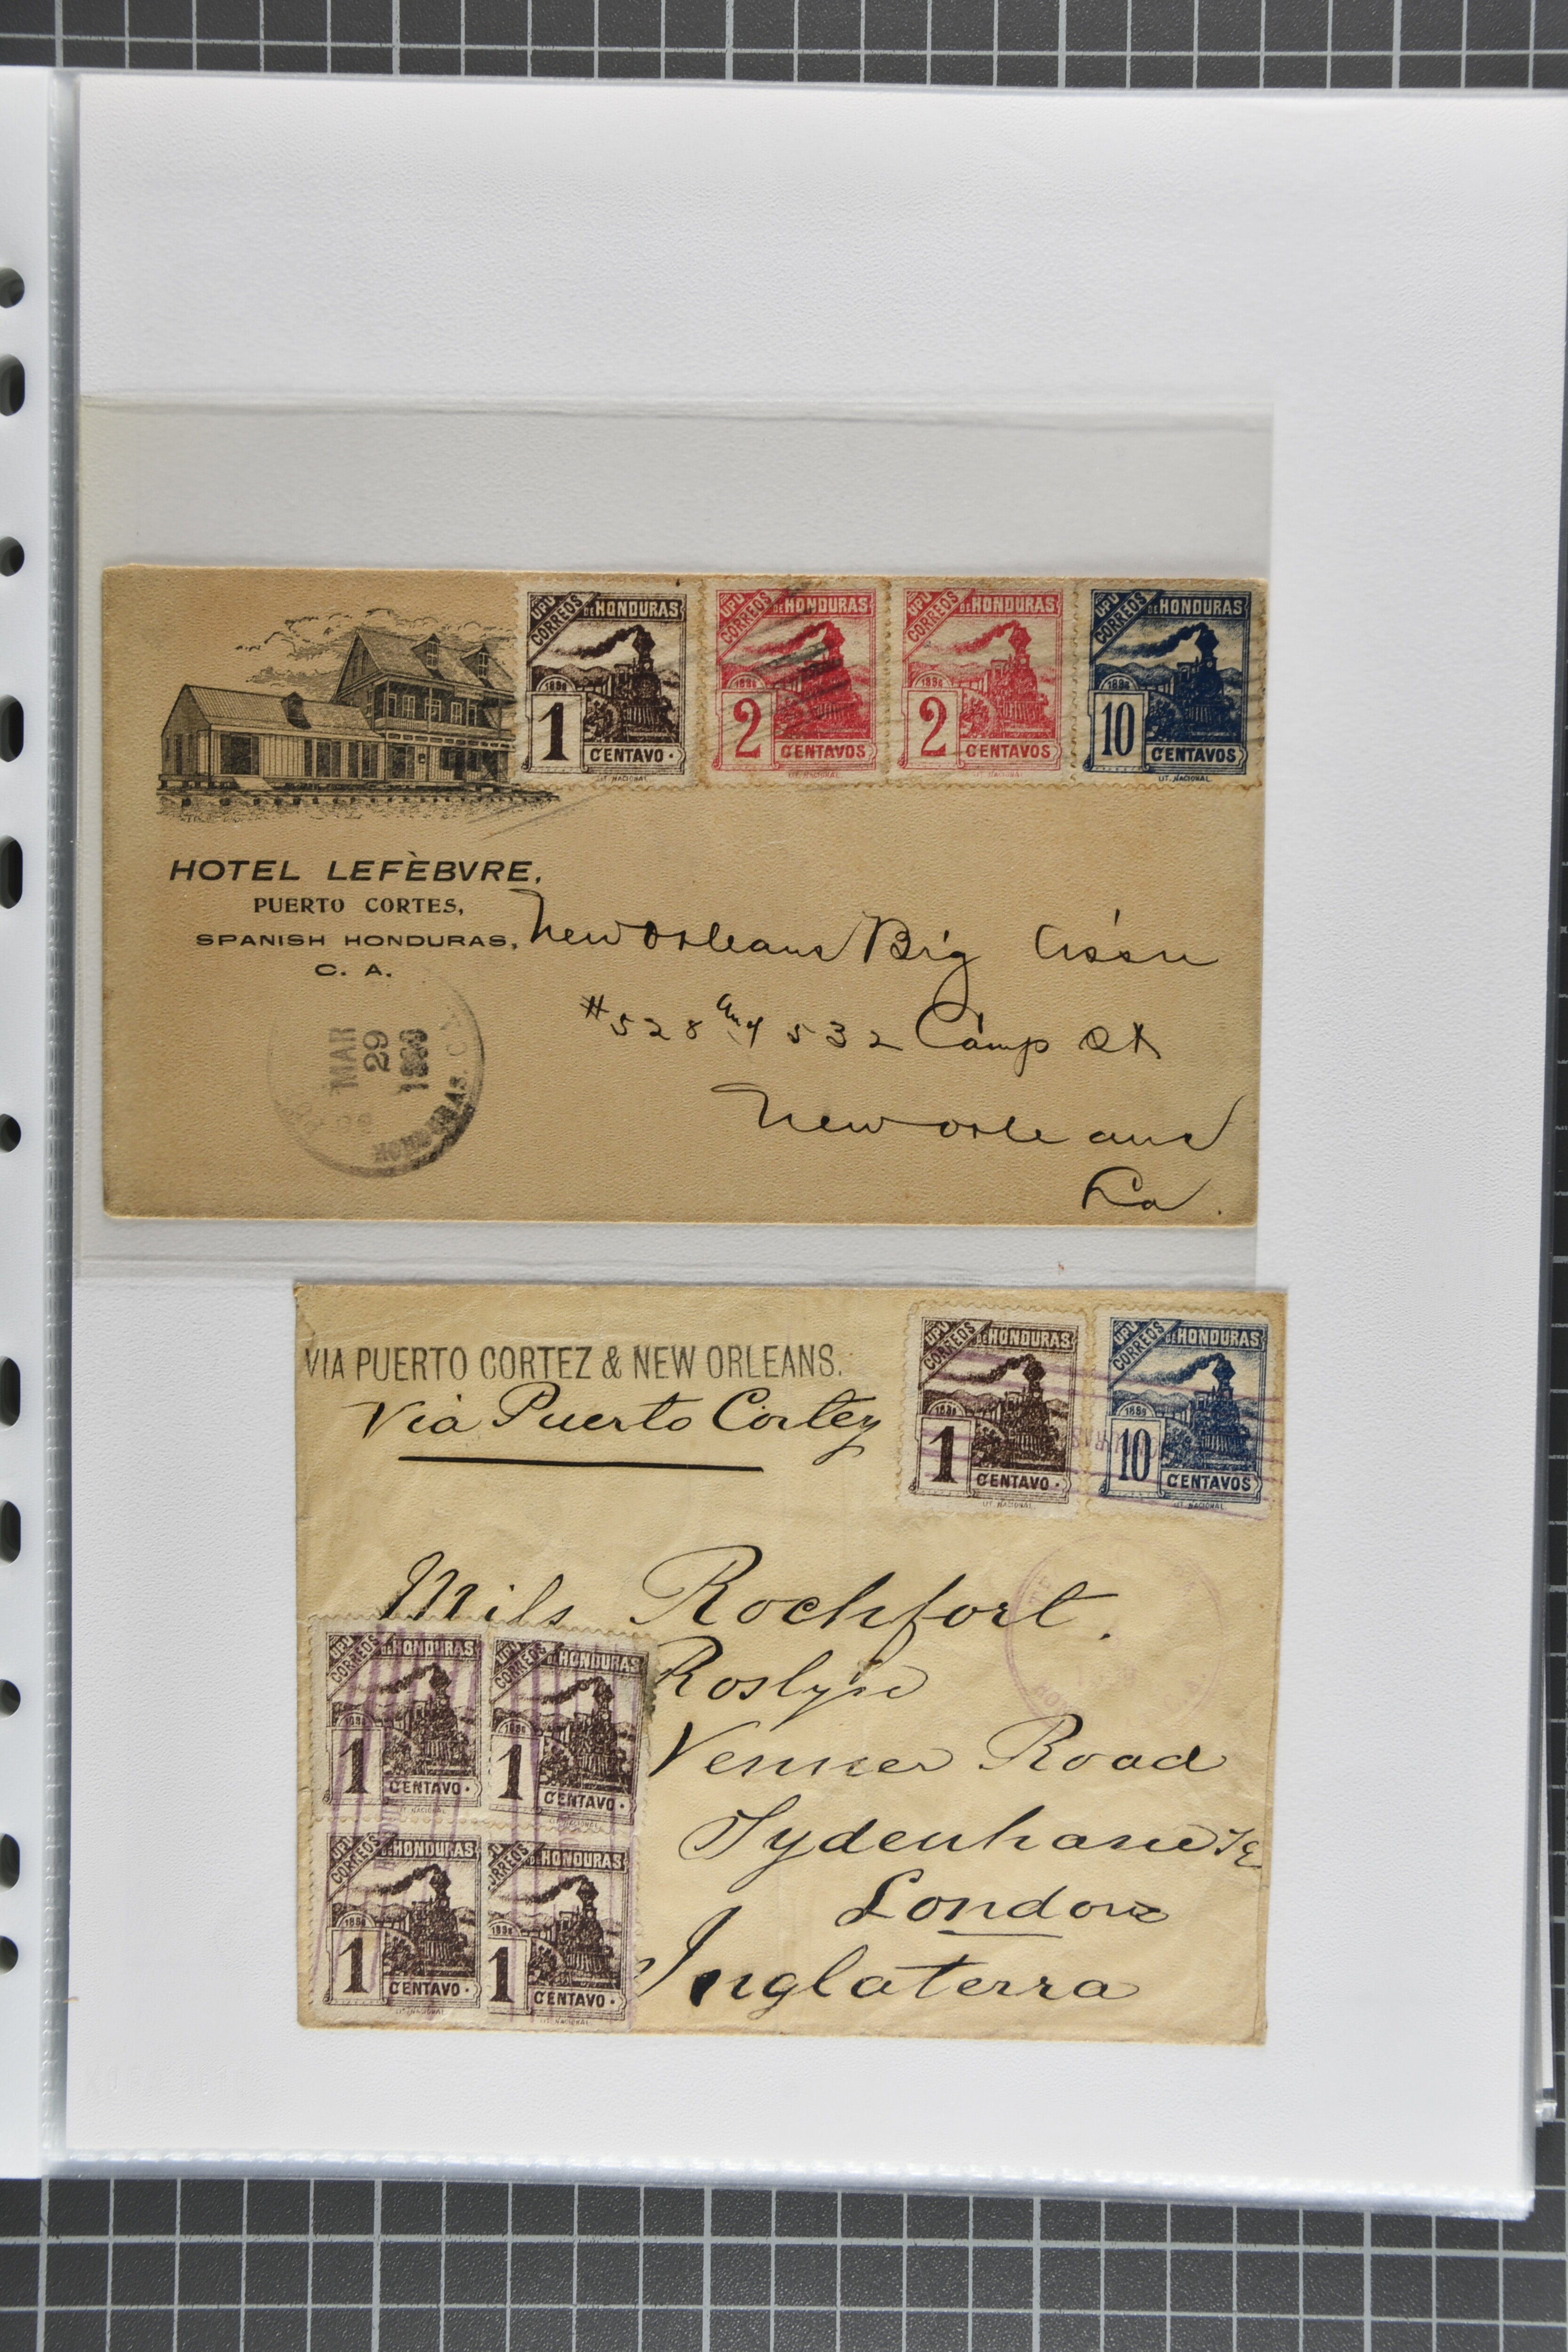 UPU CORREOS DE HONDURAS 1898 1 CENTAVO LIT. NACIONAL
UPU CORREOS DE HONDURAS 1898 2 CENTAVOS LIT. NACIONAL
UPU CORREOS DE HONDURAS 1898 2 CENTAVOS LIT. NACIONAL
UPU CORREOS DE HONDURAS 1898 10 CENTAVOS LIT. NACIONAL
HOTEL LEFÈBVRE,
PUERTO CORTES,
SPANISH HONDURAS,
C. A.
New Orleans Brg Ass'n
#528 and 532 Camp St
New Orleans
La.
MAR
29
HONDURAS. C. A.
VIA PUERTO CORTEZ & NEW ORLEANS.
Via Puerto Cortez
UPU CORREOS DE HONDURAS 1898 1 CENTAVO LIT. NACIONAL
UPU CORREOS DE HONDURAS 1898 10 CENTAVOS LIT. NACIONAL
Rochfort.
Roslyn
Venner Road
Sydenham SE
London
Inglaterra
UPU CORREOS DE HONDURAS 1898 1 CENTAVO LIT. NACIONAL
UPU CORREOS DE HONDURAS 1898 1 CENTAVO LIT. NACIONAL
UPU CORREOS DE HONDURAS 1898 1 CENTAVO LIT. NACIONAL
CORREOS DE HONDURAS 1898 1 CENTAVO LIT. NACIONAL